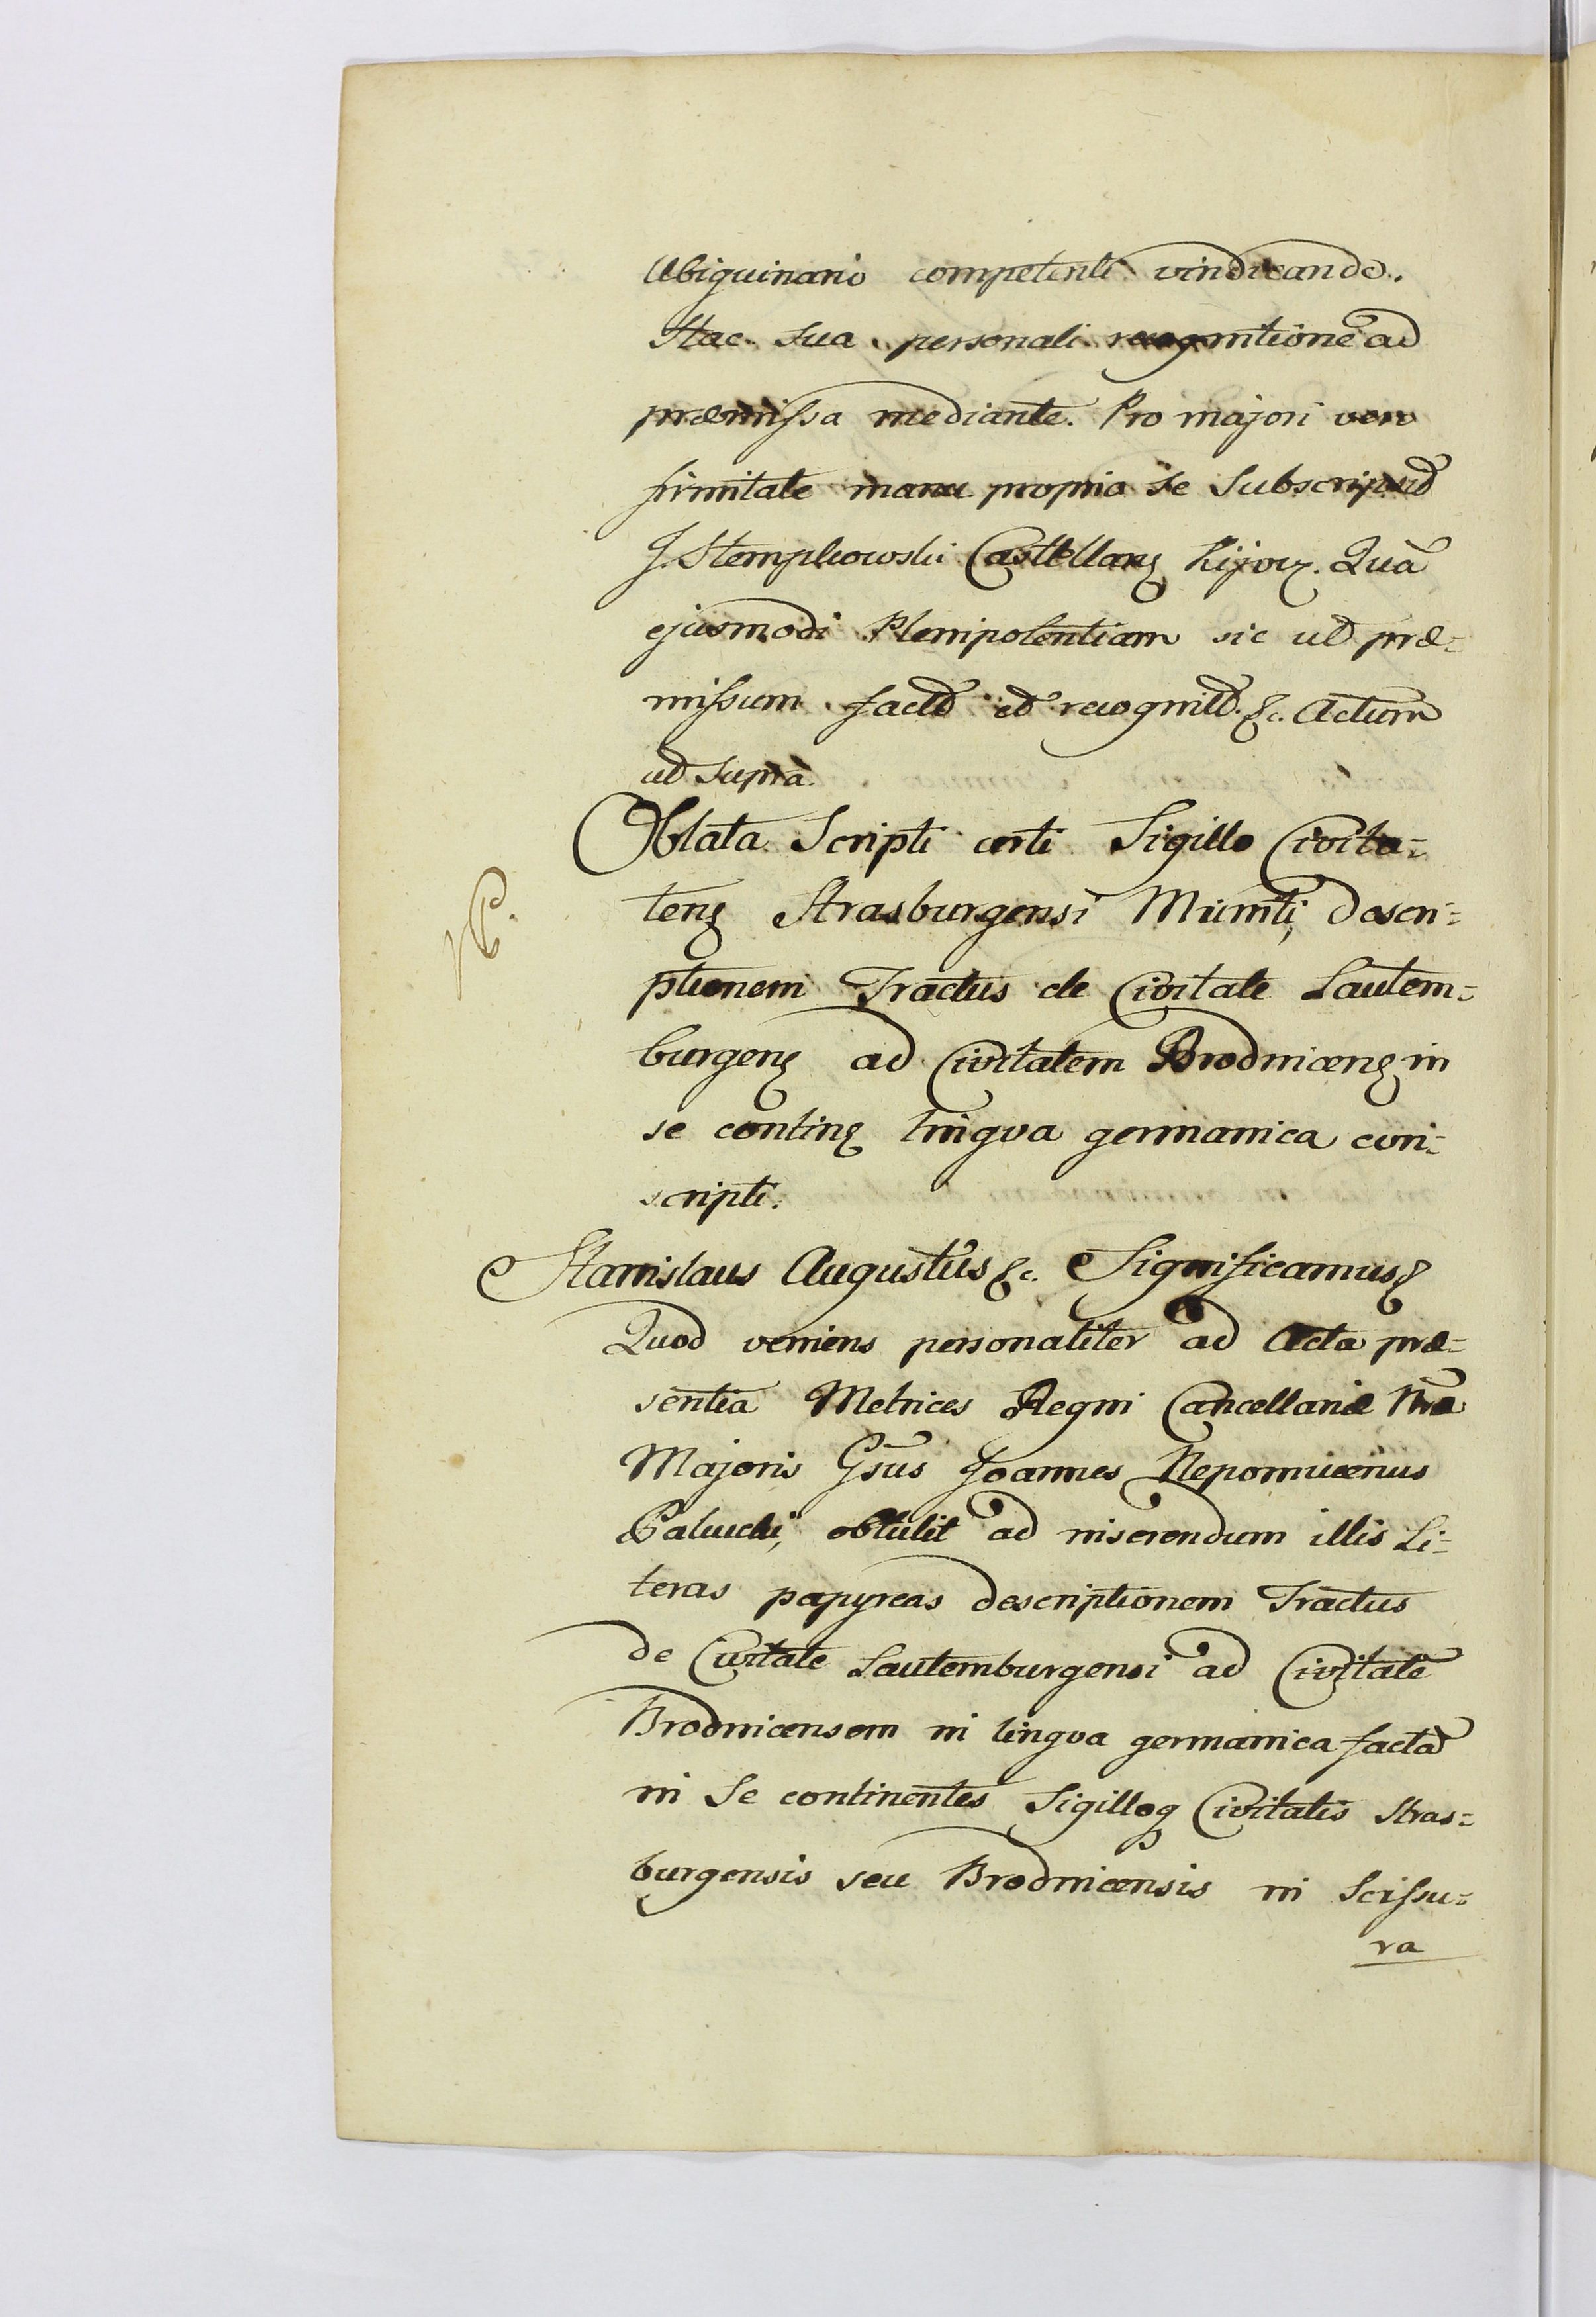 Ubiquinario competenti vindicando.
Hac sua personali recognitione ad
præmissa mediante. Pro majori vero
firmitate manu propria se Subscripsit
J. Stempkowski Castellanꝫ Kijowꝫ. Quã
ejusmodi Plenipotentiam sic ut præ=
missum factã et recognitã &c. Actum
ut Supra.
Oblata Scripti certi Sigillo Civita=
tenꝫ Strasburgensi Muniti, descri=
ptionem Tractus de Civitate Lautem=
burgenꝫ ad Civitatem Brodnicenꝫ in
se continꝫ lingva germanica con=
scripti.
Stanislaus Augustus &c. Significamus &
Quod veniens personaliter ad Acta præ=
sentia Metrices Regni Cancellariæ Nr̃æ
Majoris Gsũs Joannes Nepomucenus
obtulit ad inserendum illis Li=
teras papyreas descriptionem Tractus
de Civitate Lautemburgensi ad Civitatẽ
Brodnicensem in lingva germanica factã
in Se continentes Sigilloq Civitatis Stras=
burgensis seu Brodnicensis in Scissu=
ra